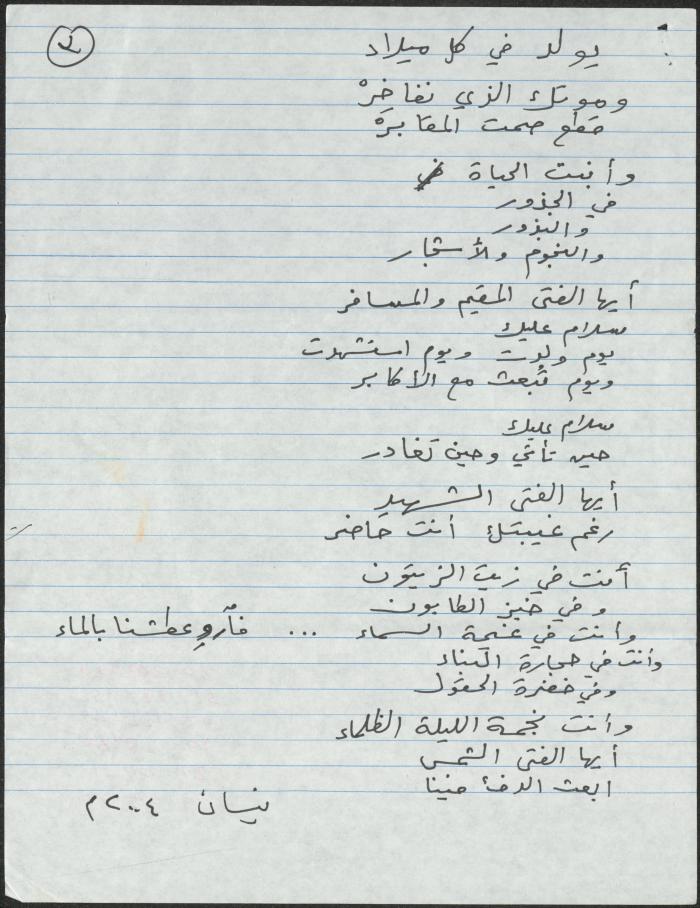 ٣
يولد في كل ميلاد
وموتك الذي نفاخِرْ
قطع صمت المقابرْ
وأنبت الحياة
في الجذور
والبذور
والنجوم والأشجار
أيها الفتى المقيم والمسافر
سلام عليك
يوم ولدت ويوم استشهدت
ويوم تُبعث مع الأكابر
سلام عليك
حين تأتي وحين تغادر
أيها الفتى الشهيد
رغم غيبتك أنت حاضر
أنت في زيت الزيتون
وفي خبز الطابون
وأنت في غيمة السماء ... فأروِ عطشنا بالماء
وأنت في حجارة البناء
وفي خضرة الحقول
وأنت نجمة الليلة الظلماء
أيها الفتى الشمس
ابعث الدفئ فينا
نيسان ٢٠٠٤م